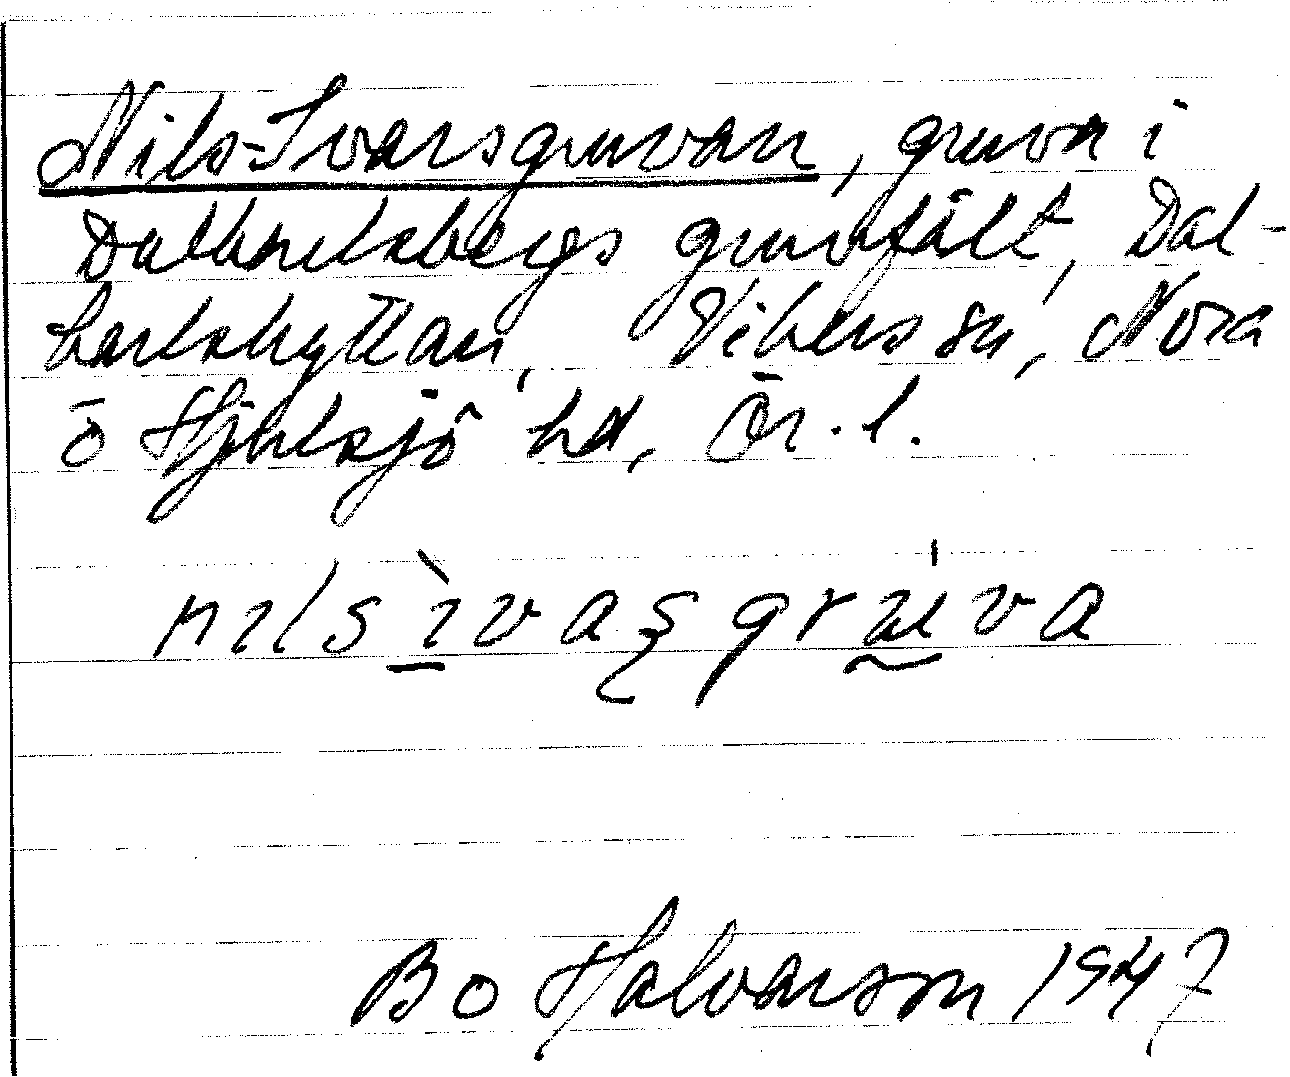 Nils-Ivarsgruvan, gruva i
Dalkarlsbergs gruvfält, Dal-
karlshyttan, Vikers sn, Nora
o Hjulsjö hd, Ör. l.
nɪlsɪ̀vaʂgrúva
Bo Halvarson 1947